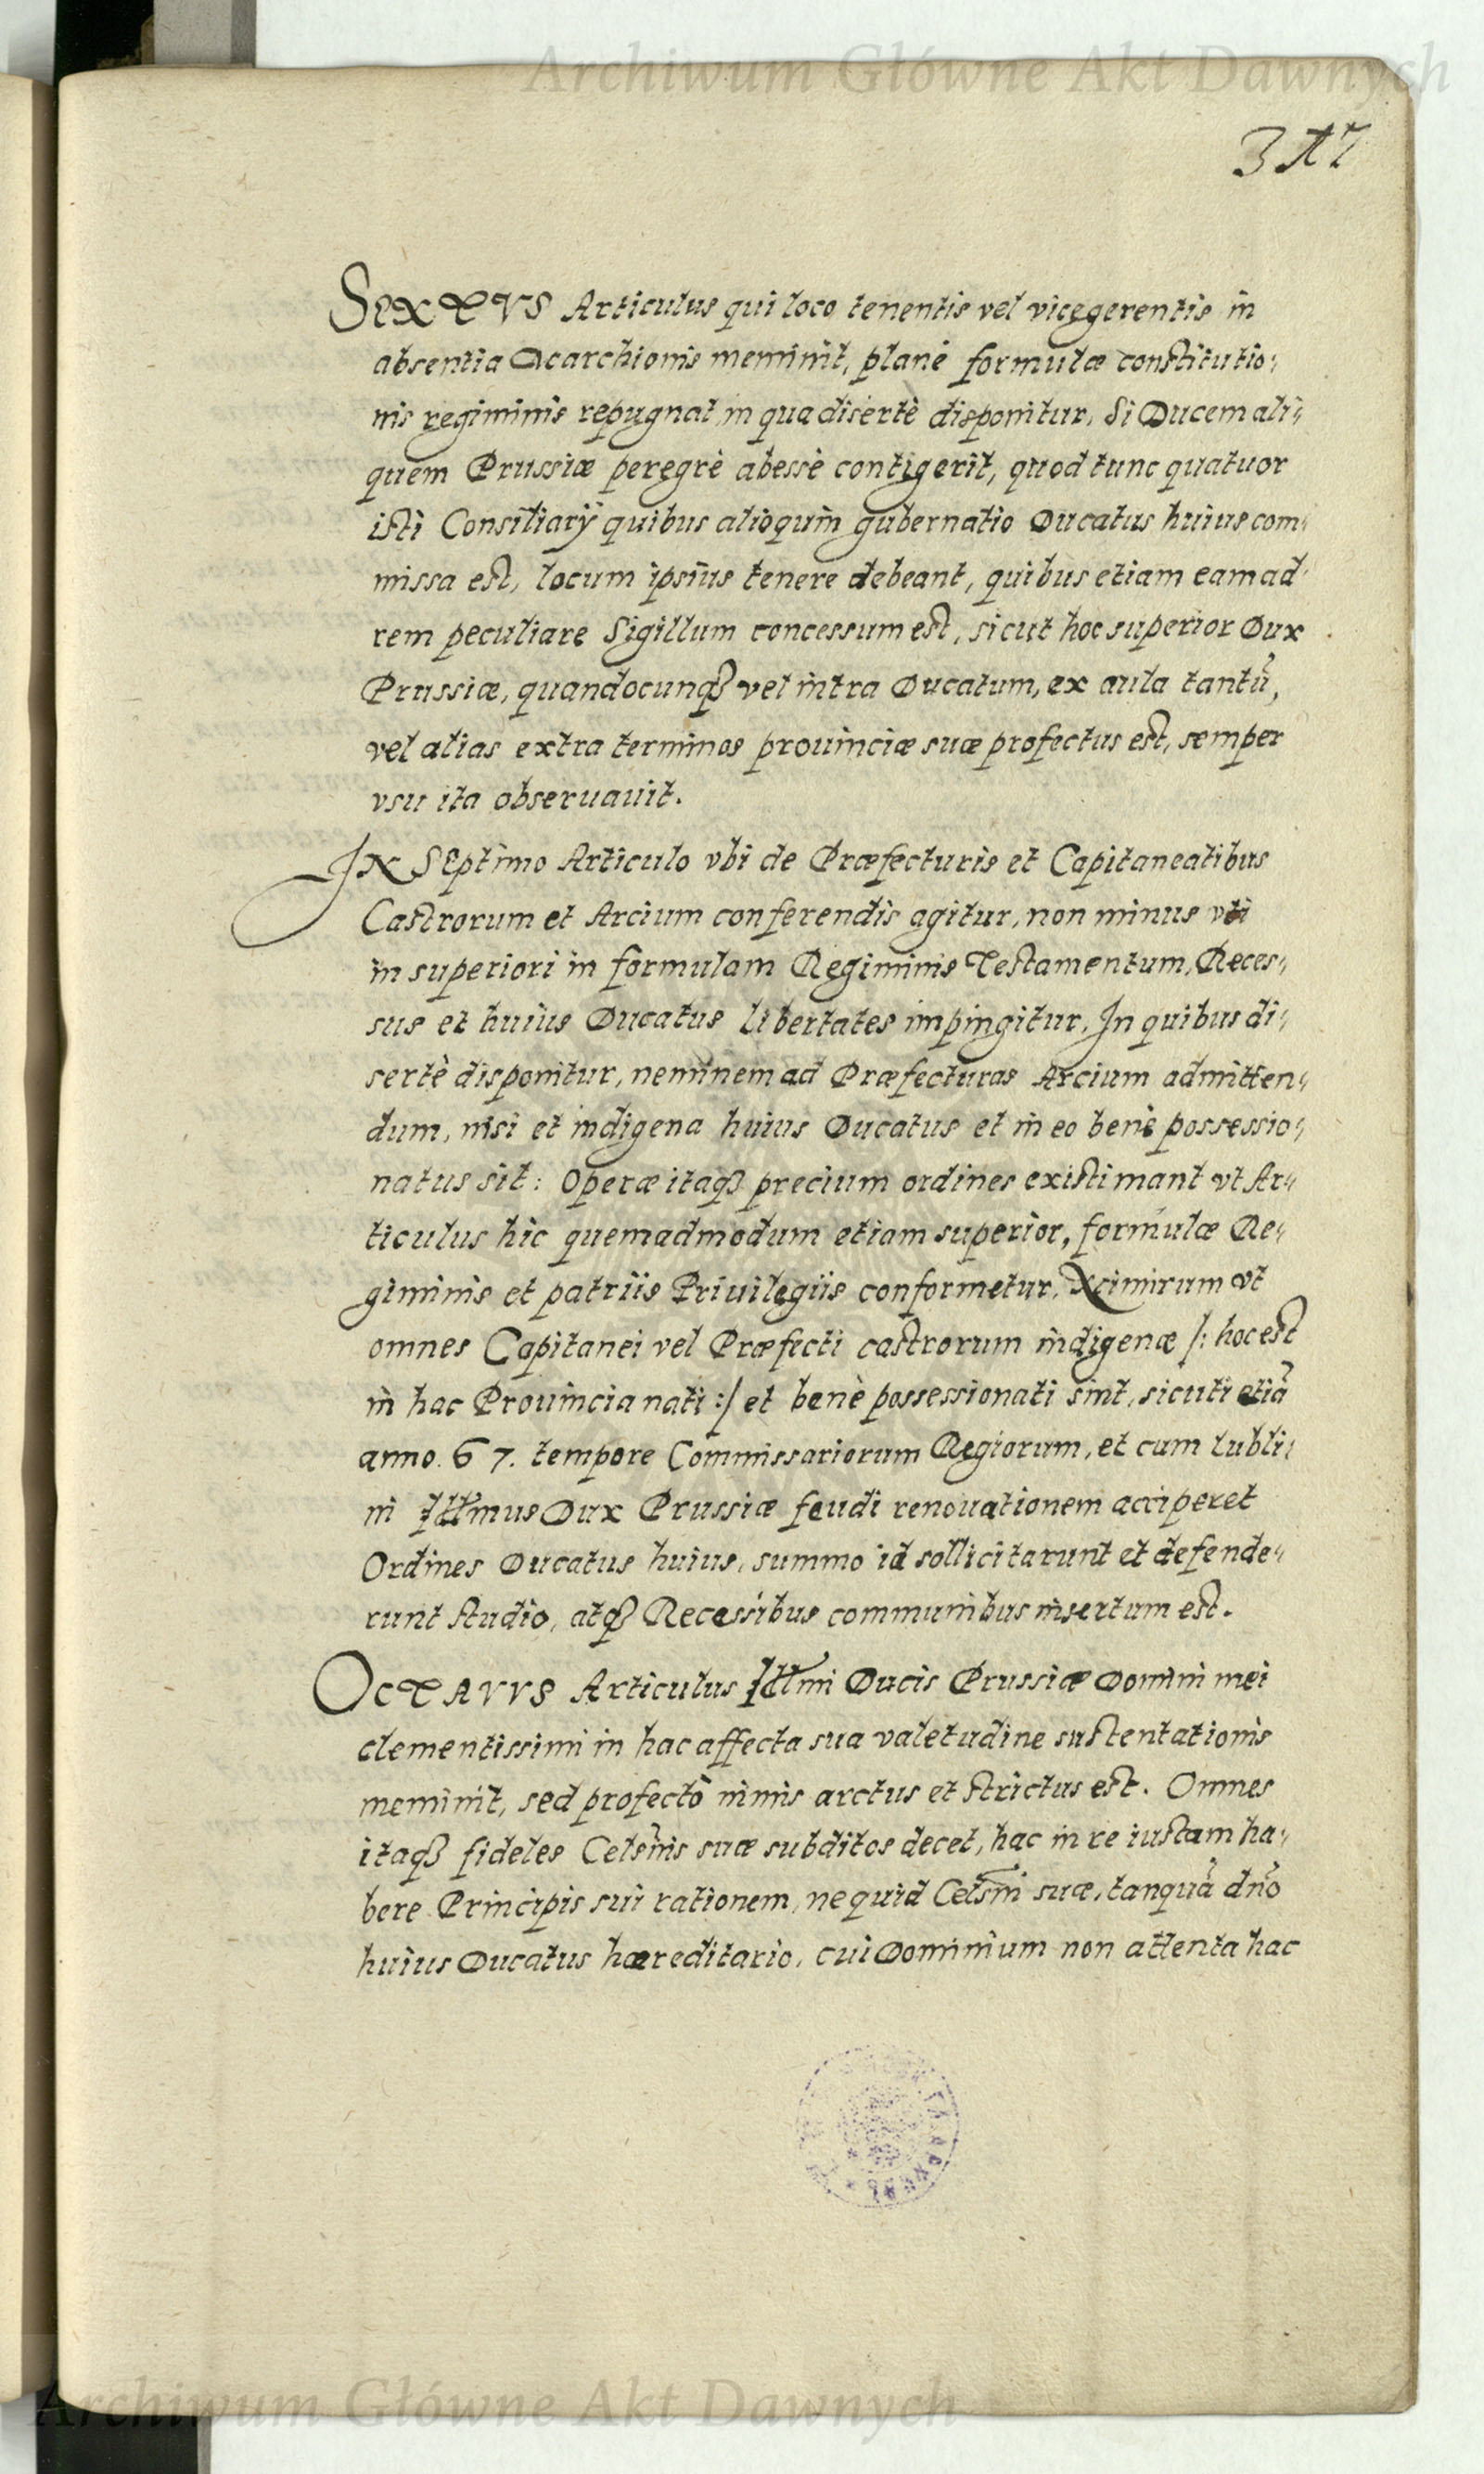 Archiwum Główne Akt Dawnych
317
SEXTVS Articulus qui loco tenentis vel vicegerentis in
absentia Marchionis meminit, planè formulæ constitutio„
nis regiminis repugnat in qua disertè disponitur, Si Ducem ali„
quem Prussiæ peregrè abesse contigerit, quod tunc quatuor
isti Consiliarÿ quibus alioquin gubernatio Ducatus huius com„
missa est, locum ipsius tenere debeant, quibus etiam eam ad
rem peculiare Sigillum concessum est, sicut hoc superior Dux
Prussiæ, quandocunqȝ vel intra Ducatum, ex aula tantũ,
vel alias extra terminos prouinciæ suæ profectus est, semper
vsu ita obseruauit.
IN SEptimo Articulo vbi de Præfecturis et Capitaneatibus
Castrorum et Arcium conferendis agitur, non minus vti
in superiori in formulam Regiminis Testamentum, Reces„
sus et huius Ducatus libertates impingitur, In quibus di„
sertè disponitur, neminem ad Præfecturas Arcium admitten„
dum, nisi et indigena huius Ducatus et in eo benè possessio„
natus sit: Operæ itaqȝ precium ordines existimant vt Ar„
ticulus hic quemadmodum etiam superior, formulæ Re„
giminis et patriis Priuilegiis conformetur, Nimirum vt
omnes Capitanei vel Præfecti castrorum indigenæ /: hoc est
in hac Prouincia nati :/ et benè possessionati sint, sicuti etiã
anno. 67. tempore Commissariorum Regiorum, et cum Lubli„
ni Illmus Dux Prussiæ feudi renouationem acciperet
Ordines Ducatus huius, summo id sollicitarunt et defende„
runt studio, atqȝ Recessibus communibus insertum est.
OCTAVVS Articulus Illmi Ducis Prussiæ Domini mei
clementissimi in hac affecta sua valetudine sustentationis
meminit, sed profectò nimis arctus et strictus est. Omnes
itaqȝ fideles Celsnis suæ subditos decet, hac in re iustam ha„
bere Principis sui rationem, ne quid Celsni suæ, tanquã dño
huius Ducatus hæreditario, cui Dominium non attenta hac
Archiwum Główne Akt Dawnych